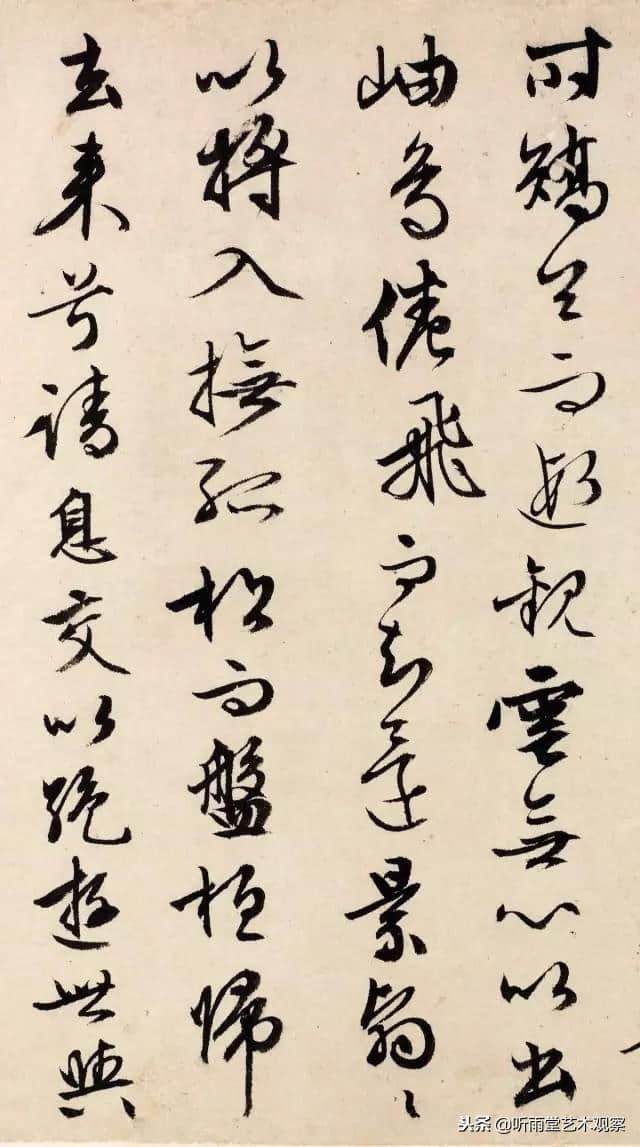 時矯首而遐觀雲無心以出
岫鳥倦飛而知還景翳〻
以將入撫孤松而盤桓歸
去來兮請息交以絶遊世與
头条 @听雨堂艺术观察